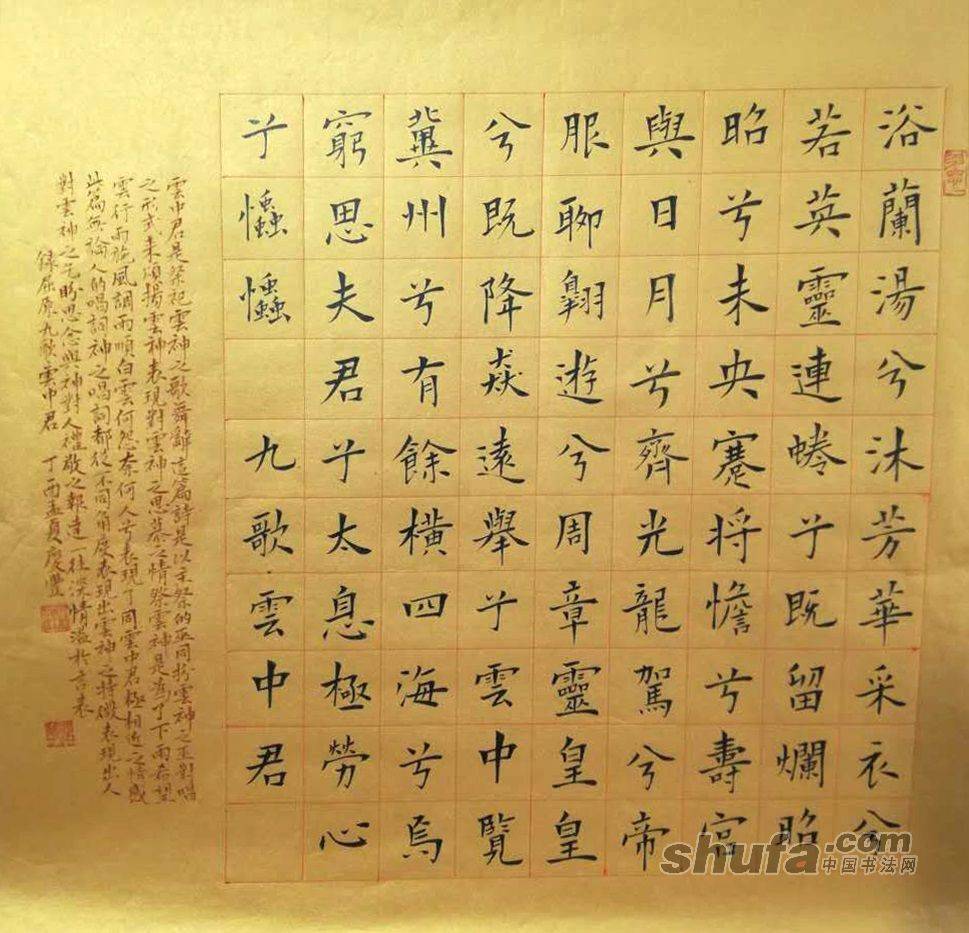 浴蘭湯兮沐芳華采衣兮
若英靈連蜷兮既留爛昭
昭兮未央蹇將憺兮壽宮
與日月兮齊光龍駕兮帝
服聊翱遊兮周章靈皇皇
兮既降猋遠舉兮雲中覽
冀州兮有餘橫四海兮焉
窮思夫君兮太息極勞心
兮𢥞𢥞 九歌雲中君
雲中君是祭祀雲神之歌舞辭這篇詩是以主祭的巫同扮雲神之巫對唱
之形式來頌揚雲神表現對雲神之思慕之情祭雲神是為了下雨希望
雲行雨施風調雨順白雲何悠奈何人兮表現了同雲中君極相近之情感
此篇無論人的唱詞神之唱詞都從不同角度表現出雲神之特徵表現出人
對雲神之乞盼思念與神對人禮敬之報達一往深情溢於言表
錄屈原九歌雲中君 丁酉孟夏慶豐
shufa.com
中国书法网